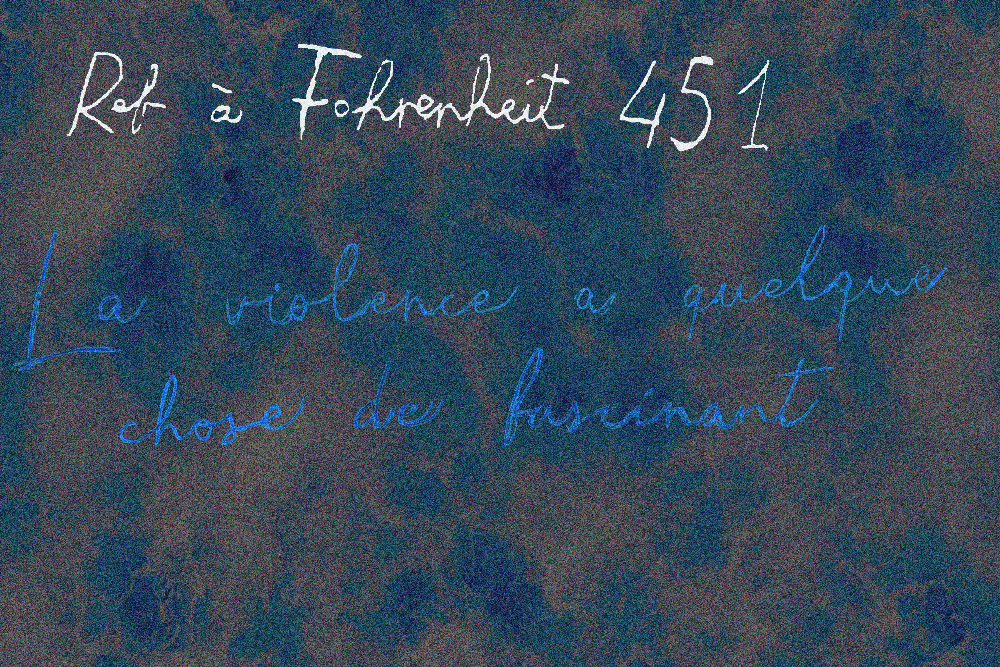 Ref à Fahrenheit 451
La violence a quelque
chose de fascinant